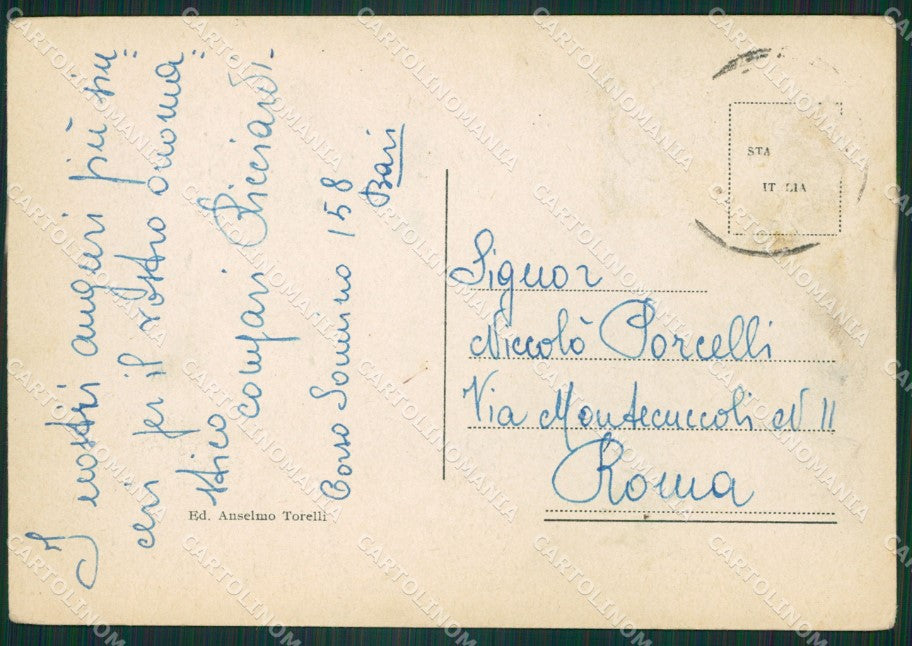 I nostri auguri più sin=
ceri per il vostro onoma=
stico
compari Ricciardi.
Corso Sonnino 158
Bari
Ed. Anselmo Torelli
STA
IT LIA
Signor
Niccolò Porcelli
Via Montecuccoli N 11
Roma
CARTOLINOMANIA